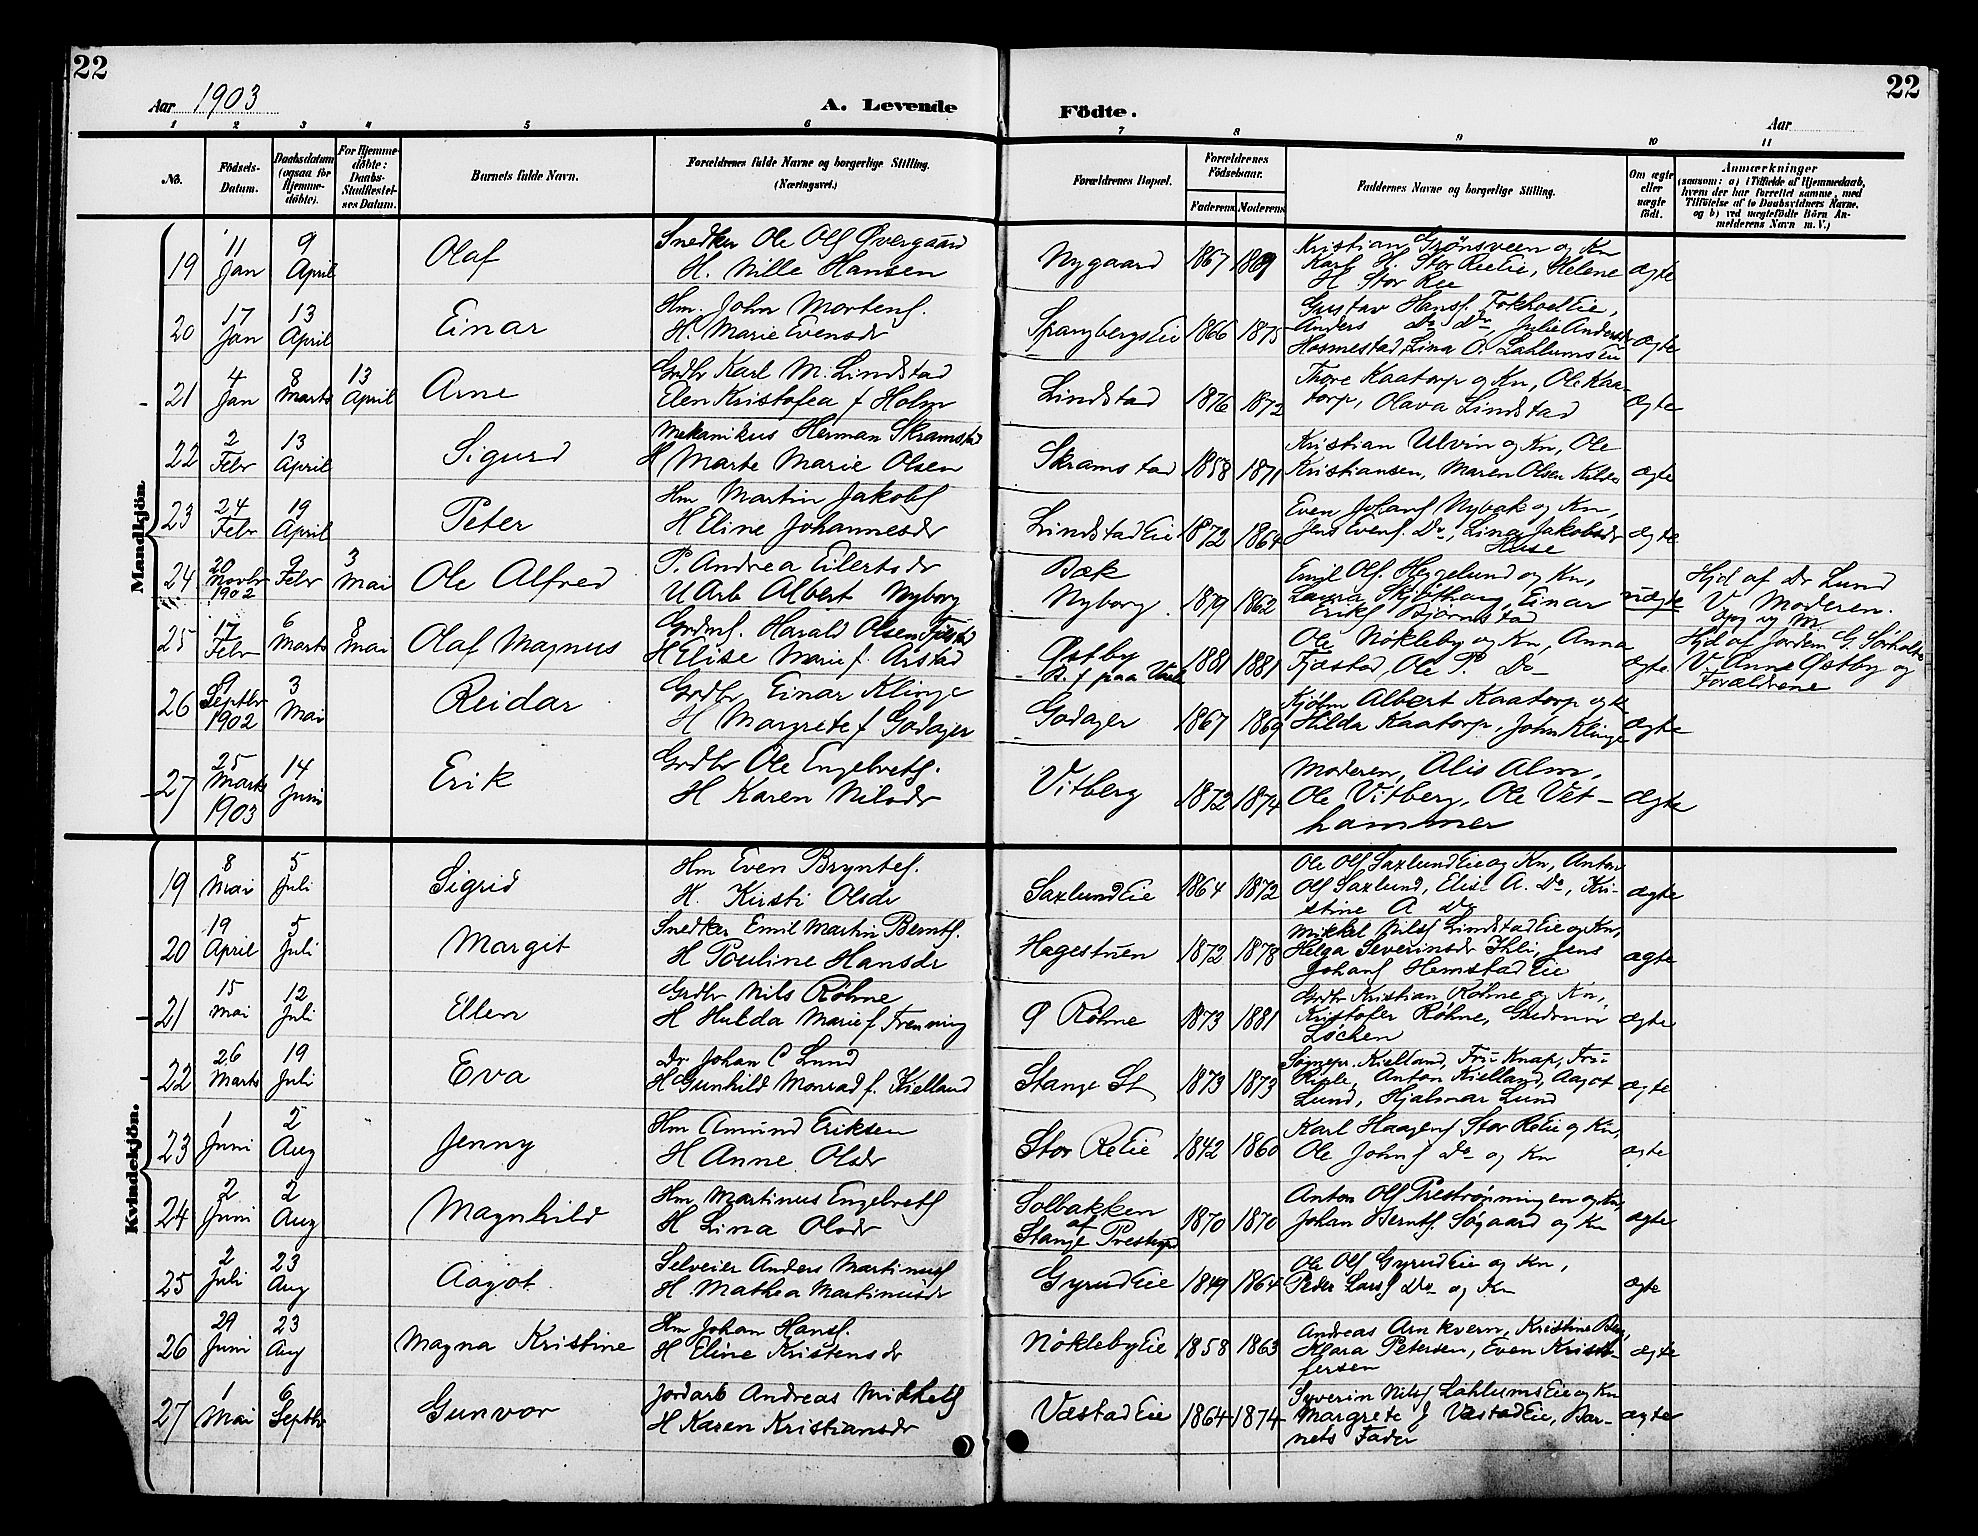 22
22
Aar 1903
A. Levende
Födte.
Aar
1 2 3 4 5 6 7 8 9 10 11
No.
Födsels-Datum.
Daabsdatum (ogsaa for Hjemmedöbte).
For Hjemmedöbte: Daabs-Stadfestelses Datum.
Barnets fulde Navn.
Forældrenes fulde Navne og borgerlige Stilling.
(Næringsvei.)
Forældrenes Bopæl.
Forældrenes Födselsaar.
Faderens Moderens
Faddernes Navne og borgerlige Stilling.
Om ægte eller uægte födt.
Anmærkninger
(saasom: a) i Tilfælde af Hjemmedaab, hvem der har forrettet samme, med Tilföielse af to Daabsvidners Navne, og b) ved uægtefödte Börn Anmelderens Navn m. V.)
Mandkjön.
19 11 Jan 9 April Olaf
Snedker Ole Ols Øvergaard
H. Nille Hansen
Nygaard 1867 1869
Kristian Grönsveen og Kn
Karl H. Stor ReeEie, Helene
H Stor Ree
ægte
20 17 Jan 13 April Einar
Hm. John Mortens.
H. Marie Evensdr
SpangbergsEie 1866 1875
Gustav Hans. FokholEie,
Anders Do Do, Julie Andersdr
Hosmestad, Lina O. LahlumsEie
ægte
21 4 Jan 8 Marts 13 April Arne
Grdbr Karl M. Lindstad
Elen Kristofea f Holm
Lindstad 1876 1872
Thore Kaatorp og Kn, Ole Kaa-
torp, Olava Lindstad
ægte
22 2 Febr 13 April Sigurd
Mekanikus Herman Skramstad
H Marte Marie Olsen
Skramstad 1858 1871
Kristian Ulvin og Kn, Ole
Kristiansen, Maren Olsen Kilde
ægte
23 24 Febr 19 April Peter
Hm Martin Jakobs
H Eline Johannesdr
LindstadEie 1872 1864
Even Johans Nybak og Kn,
Jens Evens. Do, Lina Jakobsdr
Huse
ægte
24 20 Novbr 1902 9 Febr 3 Mai Ole Alfred
P. Andrea Eilertsdr
U Arb Albert Nyborg
Bæk
Nyborg. 1879 1862
Emil Ols. Heggelund og Kn,
Laura Skjölthaug, Einar
Eriks Bjørnstad
uægte
Hjd af Dr Lund
V. Moderen.
Opg og M.
25 17 Febr 6 Marts 8 Mai Olaf Magnus
Grdms. Harald Olsen Fjæstad
H Elise Marie f. Arstad
Østby
B. f paa Vaale 1881 1881
Ole Nökleby og Kn, Anna
Fjæstad, Ole P. Do
ægte
Hjd af Jordem. G. Sörholte
V. Anne Østby og
Forældrene
26 9 Septbr 1902 3 Mai Reidar
Grdbr Einar Klinge
H Margrete f Godager
Godager 1867 1869
Kjøbm Albert Kaatorp og Kn
Hilda Kaatorp, John Klinge
ægte
27 25 Marts 1903 14 Juni Erik
Grdbr Ole Engebrets.
H Karen Nilsdr
Vitberg 1872 1874
Moderen, Alis Alm,
Ole Vitberg, Ole Vet-
hammer
ægte
Kvindekjön.
19 8 Mai 5 Juli Sigrid
Hm Even Bryntes.
H. Kirsti Olsdr
SaxlundEie 1864 1872
Ole Ols SaxlundEie og Kn, Anton
Ols Saxlund, Elise A. Do, Kri-
stine A Do
ægte
20 19 April 5 Juli Margit
Snedker Emil Martin Bernts.
H Pouline Hansdr
Hagestuen 1872 1878
Mikkel Nils LindstadEie og Kn,
Helga Severinsdr Ihli, Jens
Johans HemstadEie
ægte
21 15 Mai 12 Juli Ellen
Grdbr Nils Röhne
H Hulda Marie f Frenning
Ø Röhne 1873 1881
Grdbr Kristian Röhne og Kn,
Kristofer Röhne, Gudrun
Løcken
ægte
22 26 Marts 19 Juli Eva
Dr Johan C Lund
H Gunhild Monrad f. Kielland
Stange St 1873 1873
Sognepr. Kielland, Fru Knap, Fru
Anton Kielland, Aagot
Lund, Hjalmar Lund
ægte
23 1 Juni 2 Aug Jenny
Hm Amund Eriksen
H Anne Olsdr
Stor ReEie 1842 1860
Karl Haagens Stor ReEie og Kn,
Ole Johns Do og Kn
ægte
24 2 Juni 2 Aug Magnhild
Hm Martinus Engebrets
H Lina Olsdr
Solbakken
af
Stange Prestegrd 1870 1870
Anton Ols Preströnningen og Kn,
Johan Bernts. Sögaard og Kn
ægte
25 2 Juli 23 Aug Aagot
Selveier Anders Martinus
H. Mathea Martinusdr
GyrudEie 1849 1864
Ole Ols GyrudEie og Kn,
Peder Lars Do og Kn
ægte
26 29 Juni 23 Aug Magna Kristine
Hm Johan Hans.
H Eline Kristensdr
NöklebyEie 1858 1863
Andreas Arnkvern, Kristine Berg,
Klara Petersen, Even Kristo-
fersen
ægte
27 1 Mai 6 Septbr Gunvor
Jordarb Andreas Mikkels
H Karen Kristiansdr
VæstadEie 1864 1874
Syverin Nils LahlumsEie og Kn
Margrete J VæstadEie, Bar-
nets Fader
ægte